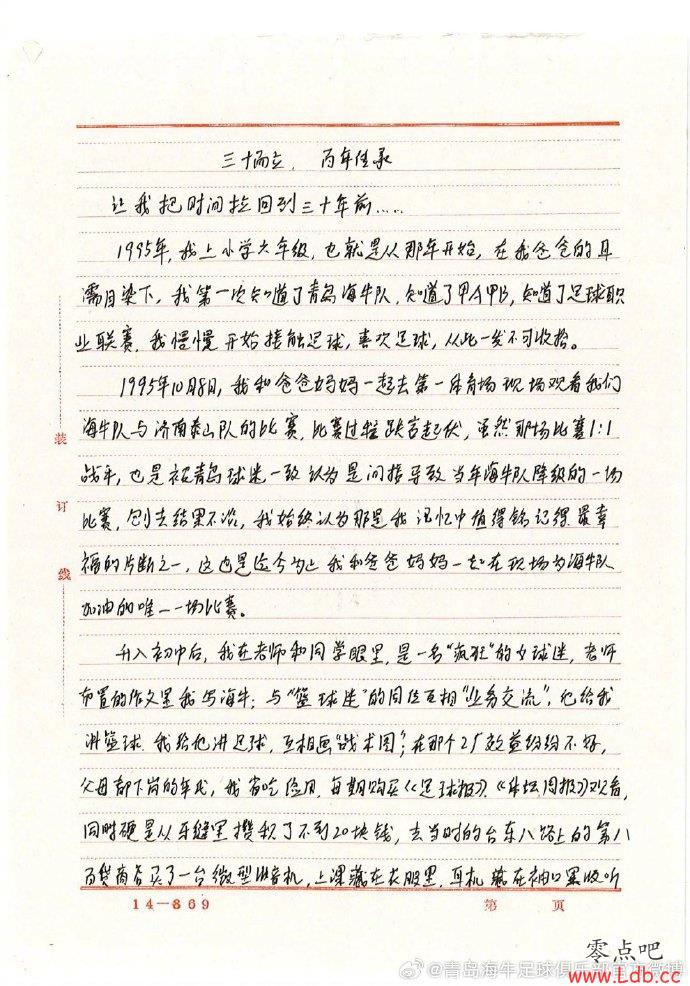 三十而立，百年传承
让我把时间拉回到三十年前……
1995年，我上小学六年级，也就是从那年开始，在我爸爸的耳
濡目染下，我第一次知道了青岛海牛队，知道了甲A甲B，知道了足球职
业联赛，我慢慢开始接触足球，喜欢足球，从此一发不可收拾。
1995年10月8日，我和爸爸妈妈一起去第一体育场现场观看我们
海牛队与济南泰山队的比赛，比赛过程跌宕起伏，虽然那场比赛1:1
战平，也是被青岛球迷一致认为是间接导致当年海牛队降级的一场
比赛，刨去结果不谈，我始终认为那是我记忆中值得铭记得最幸
福的片断之一，这也是迄今为止我和爸爸妈妈一起在现场为海牛队
加油的唯一一场比赛。
升入初中后，我在老师和同学眼里，是一名“疯狂”的女球迷，老师
布置的作文里我写海牛；与“篮球迷”的同位互相“业务交流”，他给我
讲篮球，我给他讲足球，互相画“战术图”；在那个工厂效益纷纷不好，
父母都下岗的年代，我省吃俭用，每期购买《足球报》、《体坛周报》观看，
同时硬是从牙缝里攒积了不到20块钱，去当时的台东八路上的第八
百货商店买了一台微型收音机，上课藏在衣服里，耳机藏在袖口里收听
装
订
线
14-869
第 页
@青岛海牛足球俱乐部官方微博
零点吧
www.Ldb.cc